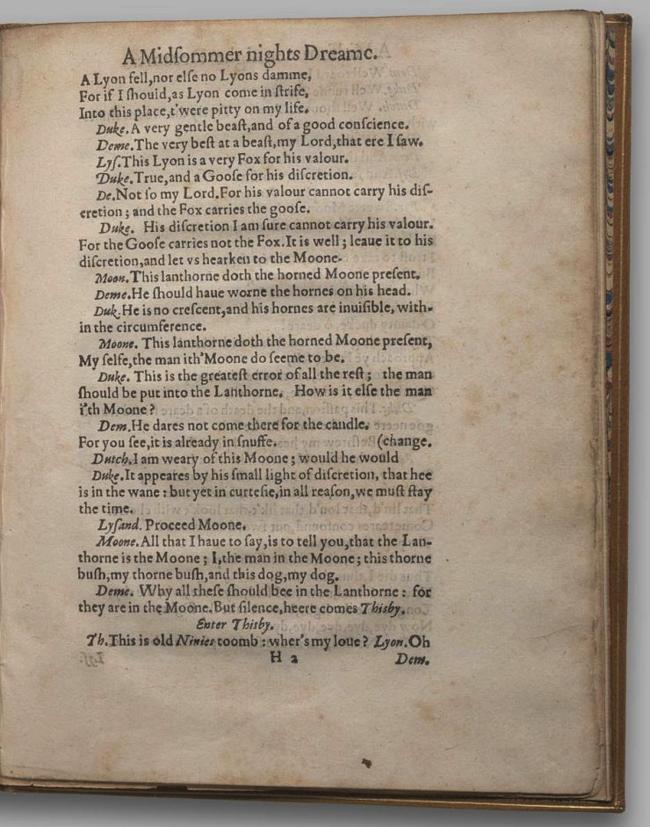 A Midſommer nights Dreame.
A Lyon fell,nor elſe no Lyons damme,
For if I ſhould,as Lyon come in ſtrife,
Into this place,t'were pitty on my life.
Duke. A very gentle beaſt,and of a good conſcience.
Deme. The very beſt at a beaſt,my Lord,that ere I ſaw.
Lyſ. This Lyon is a very Fox for his valour.
Duke. True,and a Gooſe for his diſcretion.
De. Not ſo my Lord.For his valour cannot carry his diſ-
cretion ; and the Fox carries the gooſe.
Duke. His diſcretion I am ſure cannot carry his valour.
For the Gooſe carries not the Fox.It is well ; leaue it to his
diſcretion,and let vs hearken to the Moone.
Moon. This lanthorne doth the horned Moone preſent.
Deme. He ſhould haue worne the hornes on his head.
Duk. He is no creſcent,and his hornes are inuiſible, with-
in the circumference.
Moone. This lanthorne doth the horned Moone preſent,
My ſelfe,the man ith'Moone do ſeeme to be.
Duke. This is the greateſt error of all the reſt ; the man
ſhould be put into the Lanthorne. How is it elſe the man
i'th Moone ?
Dem. He dares not come there for the candle.
For you ſee,it is already in ſnuffe. (change.
Dutch. I am weary of this Moone ; would he would
Duke. It appeares by his ſmall light of diſcretion, that hee
is in the wane : but yet in curteſie,in all reaſon,we muſt ſtay
the time.
Lyſand. Proceed Moone.
Moone. All that I haue to ſay,is to tell you,that the Lan-
thorne is the Moone ; I,the man in the Moone ; this thorne
buſh,my thorne buſh,and this dog,my dog.
Deme. Why all theſe ſhould bee in the Lanthorne : for
they are in the Moone.But ſilence,heere comes Thisby.
Enter Thisby.
Th. This is old Ninies toomb : wher's my loue ? Lyon. Oh
H 2 Dem.